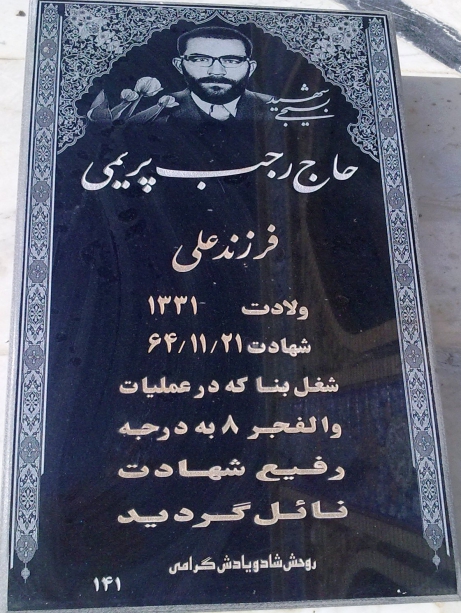 شهید
بسیجی
حاج رجب پریمی
فرزند علی
ولادت ۱۳۳۱
شهادت ۶۴/۱۱/۲۱
شغل بنا که در عملیات
والفجر ۸ به درجه
رفیع شهادت
نائل گردید
روحش شاد و یادش گرامی
۱۴۱